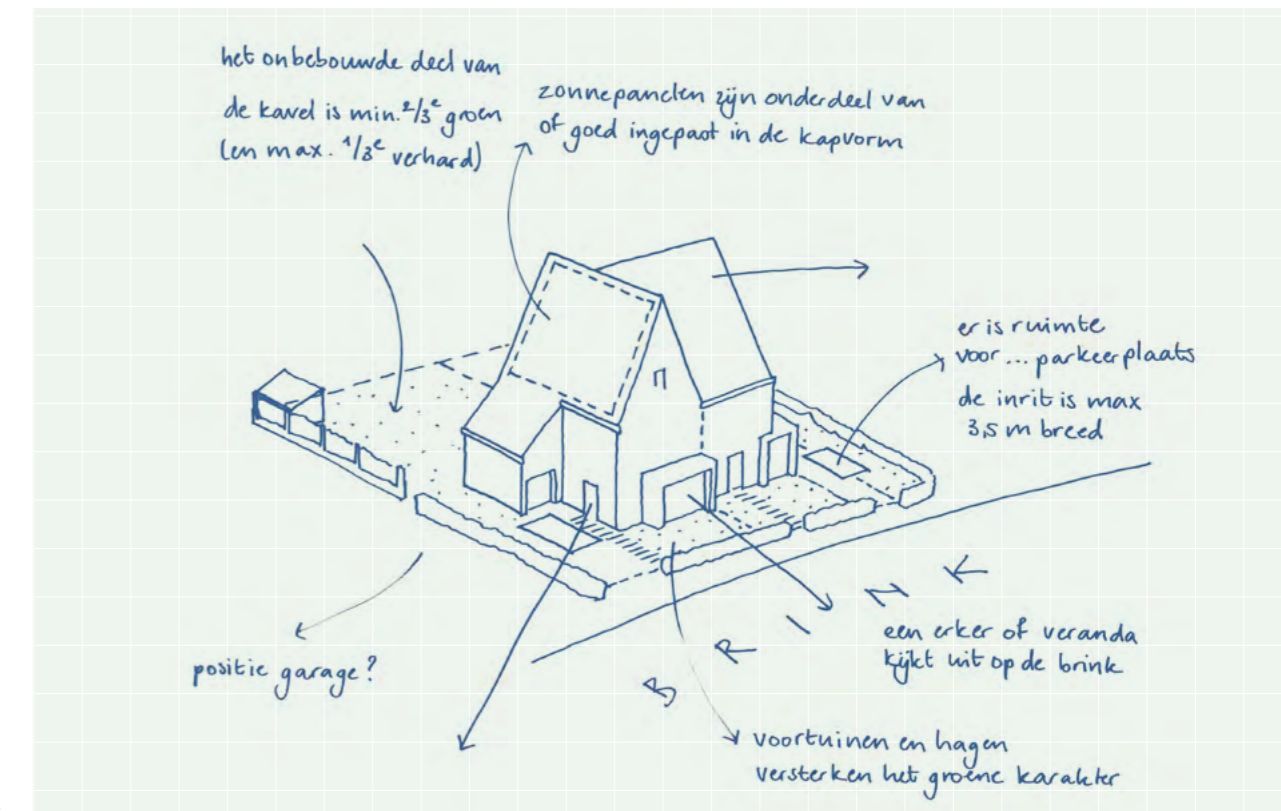 het onbebouwde deel van
de kavel is min. 2/3e groen
(en max. 1/3e verhard)
zonnepanelen zijn onderdeel van
of goed ingepast in de kapvorm
er is ruimte
voor ... parkeerplaats
de inrit is max
3,5 m breed
BRINK
een erker of veranda
kijkt uit op de brink
positie garage?
voortuinen en hagen
versterken het groene karakter